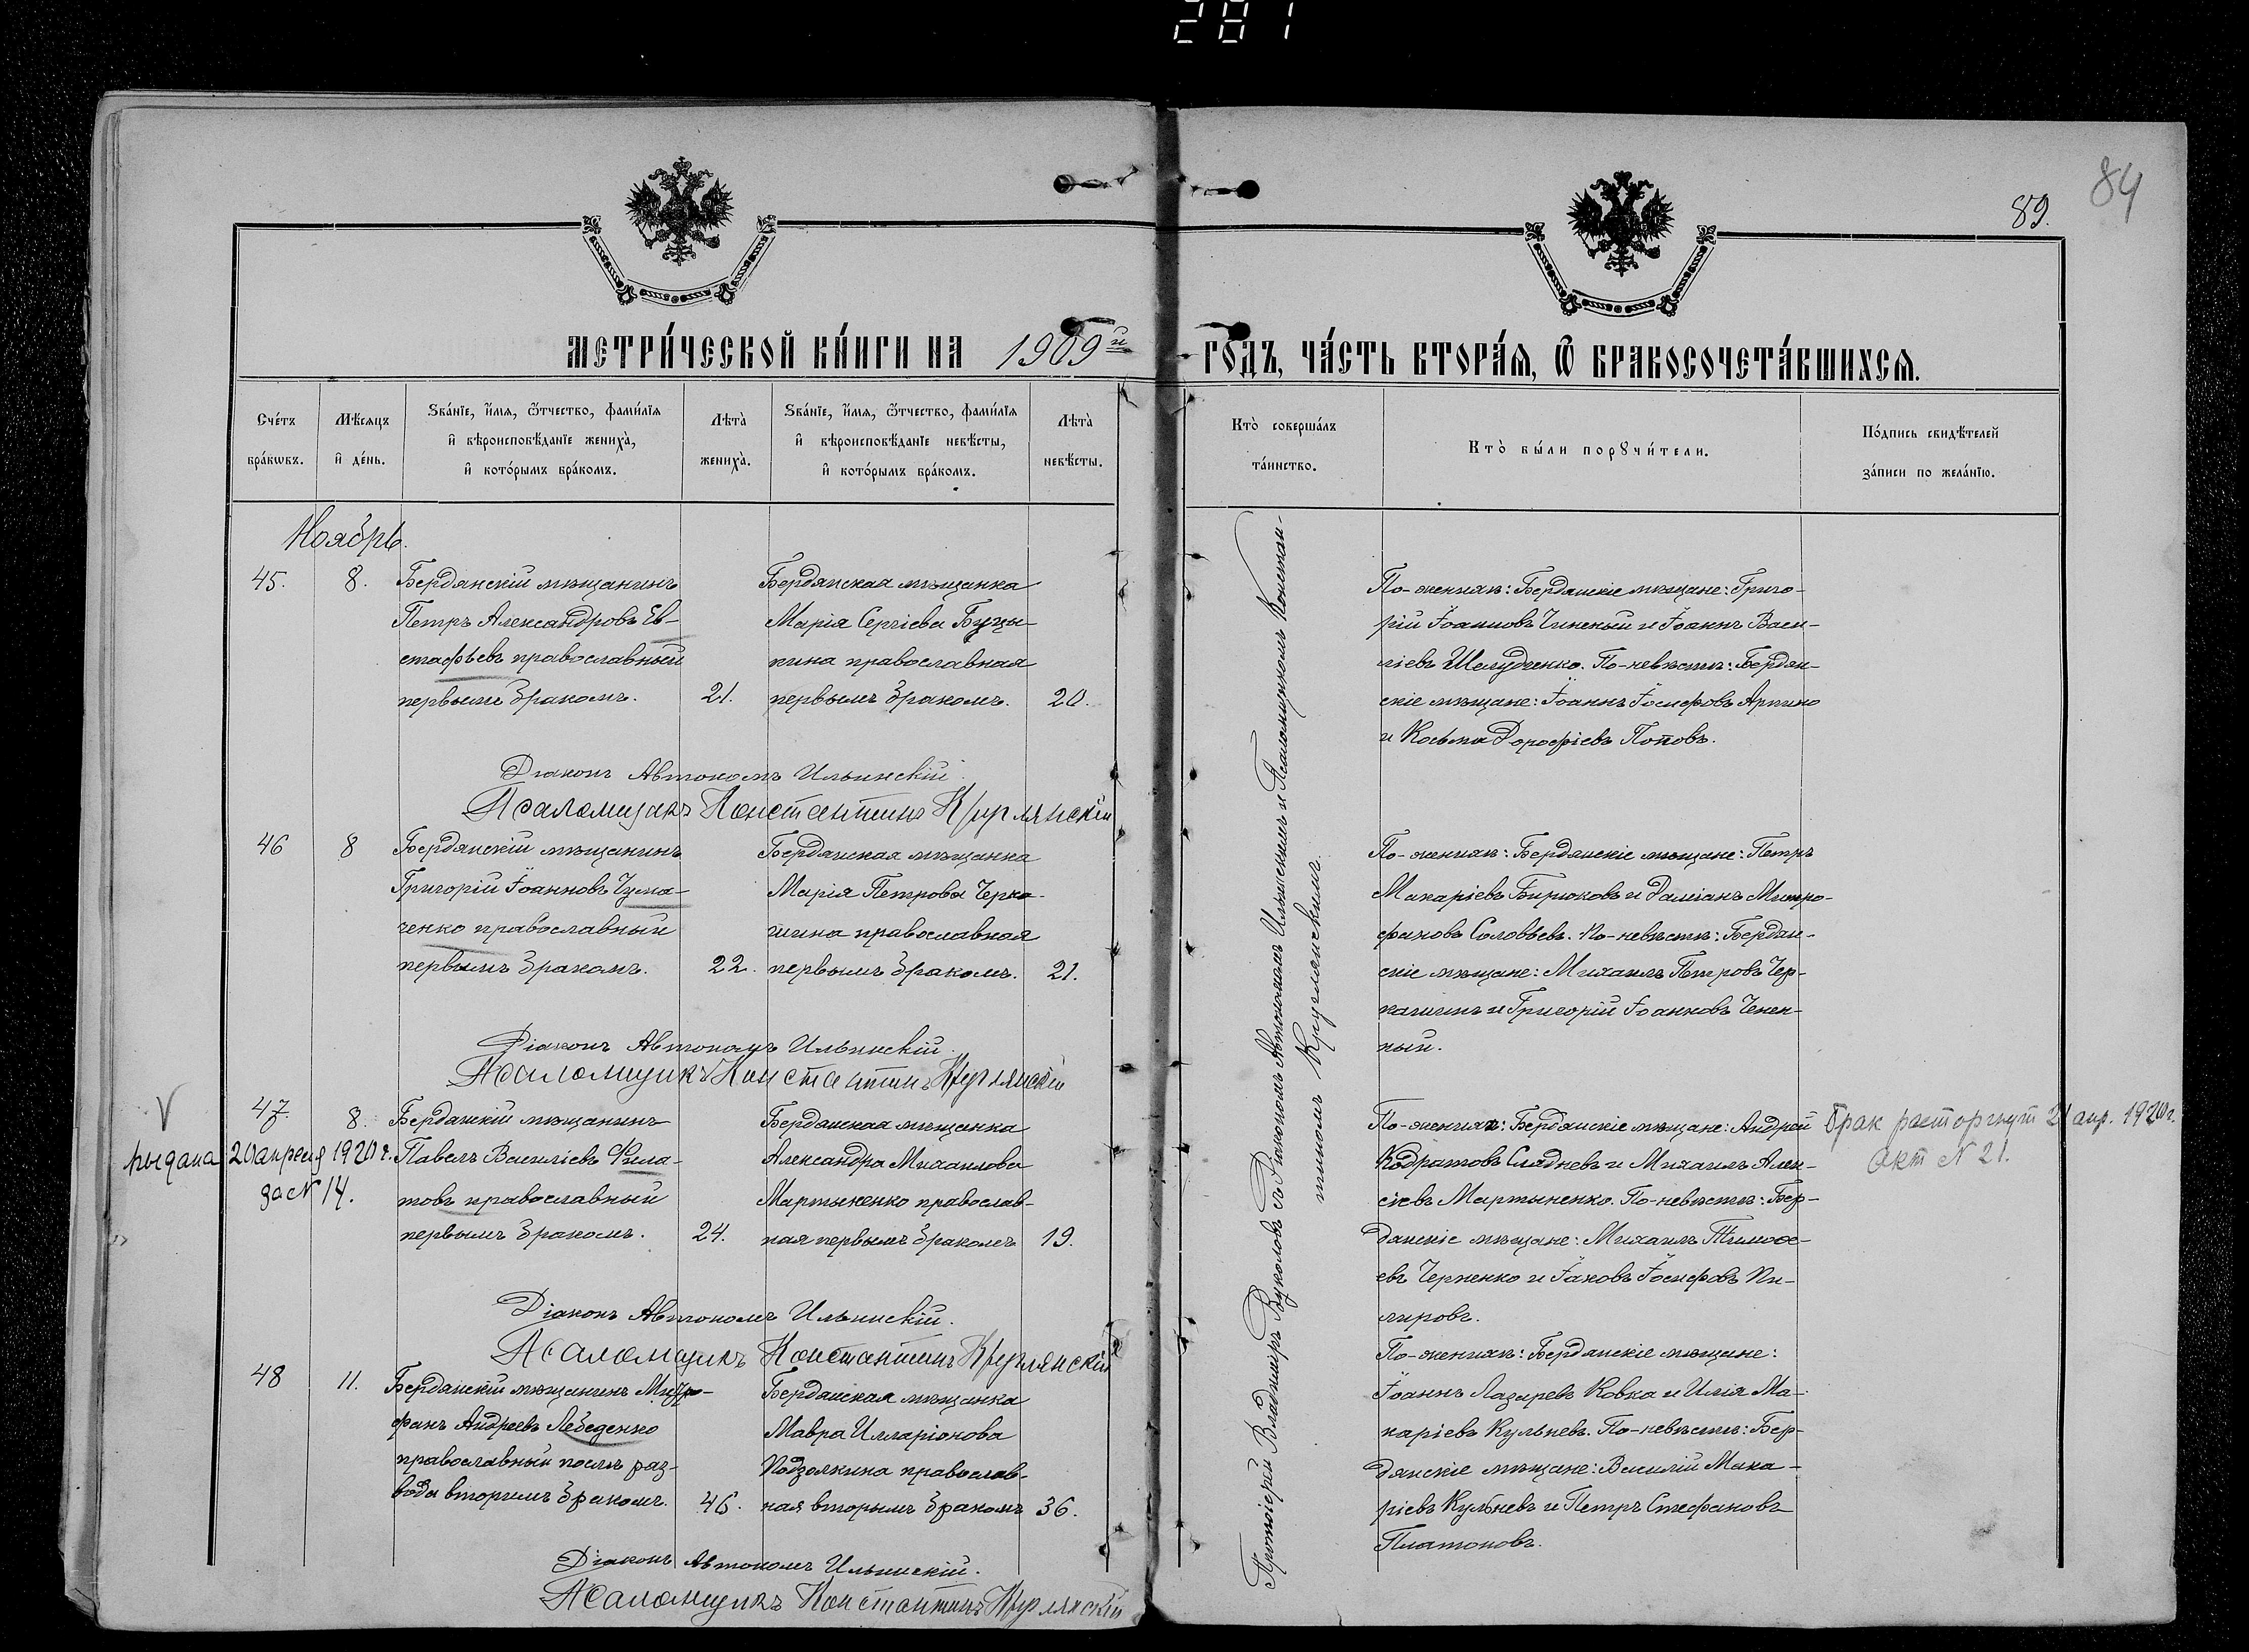 281
84
89.
МЕТРИ́ЧЕСКОЙ КНИ́ГИ НА 1909й
ГО́ДЪ, ЧА́СТЬ ВТОРА́Я, Ѽ БРАКОСОЧЕТА́ВШИХСЯ.
Сче́тъ
бра́кѡвъ.
Мѣ́сяцъ
и҆ де́нь.
Ѕва́нїе, и҆́мя, ѻ҆́тчество, фами́лїя
и҆ вѣроисповѣ́данїе жениха̀,
и҆ кото́рымъ бра́комъ.
Лѣта̀
жениха̀.
Ѕва́нїе, и҆́мя, ѻ҆́тчество, фами́лїя
и҆ вѣроисповѣ́данїе невѣ́сты,
и҆ кото́рымъ бра́комъ.
Лѣта̀
невѣ́сты.
Кто̀ соверша́лъ
та́инство.
Кто̀ бы́ли порꙋчи́тели.
По́дпись свидѣ́телей
за́писи по жела́нїю.
Ноябрь.
45.
8.
Бердянскій мѣщанинъ
Петръ Александровъ Ев-
стафьевъ православный
первымъ бракомъ.
21.
Бердянская мѣщанка
Марія Сергіева Буцы-
нина православная
первымъ бракомъ.
20.
По-женихѣ: Бердянскіе мѣщане: Григо-
рій Іоанновъ Чиненый и Іоаннъ Васи-
ліевъ Шелудченко. По-невѣстѣ: Бердян-
скіе мѣщане: Іоаннъ Іосифовъ
и Косьма Дорофіевъ Поповъ.
Діаконъ Автономъ Ильинскій.
Псаломщикъ Константинъ Круглянскій
46
8
Бердянскій мѣщанинъ
Григорій Іоанновъ Чума-
ченко православный
первымъ бракомъ.
22.
Бердянская мѣщанка
Марія Петрова Черка-
шина православная
первымъ бракомъ.
21.
По-женихѣ: Бердянскіе мѣщане: Петръ
Макаріевъ Бирюковъ и Даміанъ Митро-
фановъ Соловьевъ. По-невѣстѣ: Бердян-
скіе мѣщане: Михаилъ Петровъ Чер-
кашинъ и Григорій Іоанновъ Ченен-
ный.
Діаконъ Автономъ Ильинскій.
Псаломщикъ Константинъ Круглянскій
V
выдана 20 апреля 1920 г.
за N 14.
47.
8.
Бердянскій мѣщанинъ
Павелъ Василіевъ Фила-
товъ православный
первымъ бракомъ.
24.
Бердянская мѣщанка
Александра Михаилова
Мартыненко православ-
ная первымъ бракомъ
19.
По-женихѣ: Бердянскіе мѣщане: Андрей
Кодратовъ Сляднев и Михаилъ Алек-
сіевъ Мартыненко. По-невѣстѣ: Бер-
дянскіе мѣщане: Михаилъ Тимоѳе-
евъ Черненко и Іаковъ Іосифовъ Пи-
лировъ.
брак расторгнут 21 апр. 1920 г.
Акт N 21.
Діаконъ Автономъ Ильинскій.
Псаломщикъ Константинъ Круглянскій
48
11.
Бердянскій мѣщанинъ Митро-
фанъ Андреевъ Лебеденко
православный послѣ раз-
вода вторымъ бракомъ.
46.
Бердянская мѣщанка
Мавра Илларіонова
Подзолкина православ-
ная вторымъ бракомъ
36.
По-женихѣ: Бердянскіе мѣщане:
Іоаннъ Лазаревъ Ковка и Илія Ма-
каріевъ Кульневъ. По-невѣстѣ: Бер-
дянскіе мѣщане: Василій Мака-
ріевъ Кульневъ и Петръ Стефановъ
Платоновъ.
Діаконъ Автономъ Ильинскій.
Псаломщикъ Константинъ Круглянскій
Протоіерей Владиміръ Вуколовъ съ Діакономъ Автономомъ Ильинскимъ и Псаломщикомъ Констан-
тиномъ Круглянскимъ.